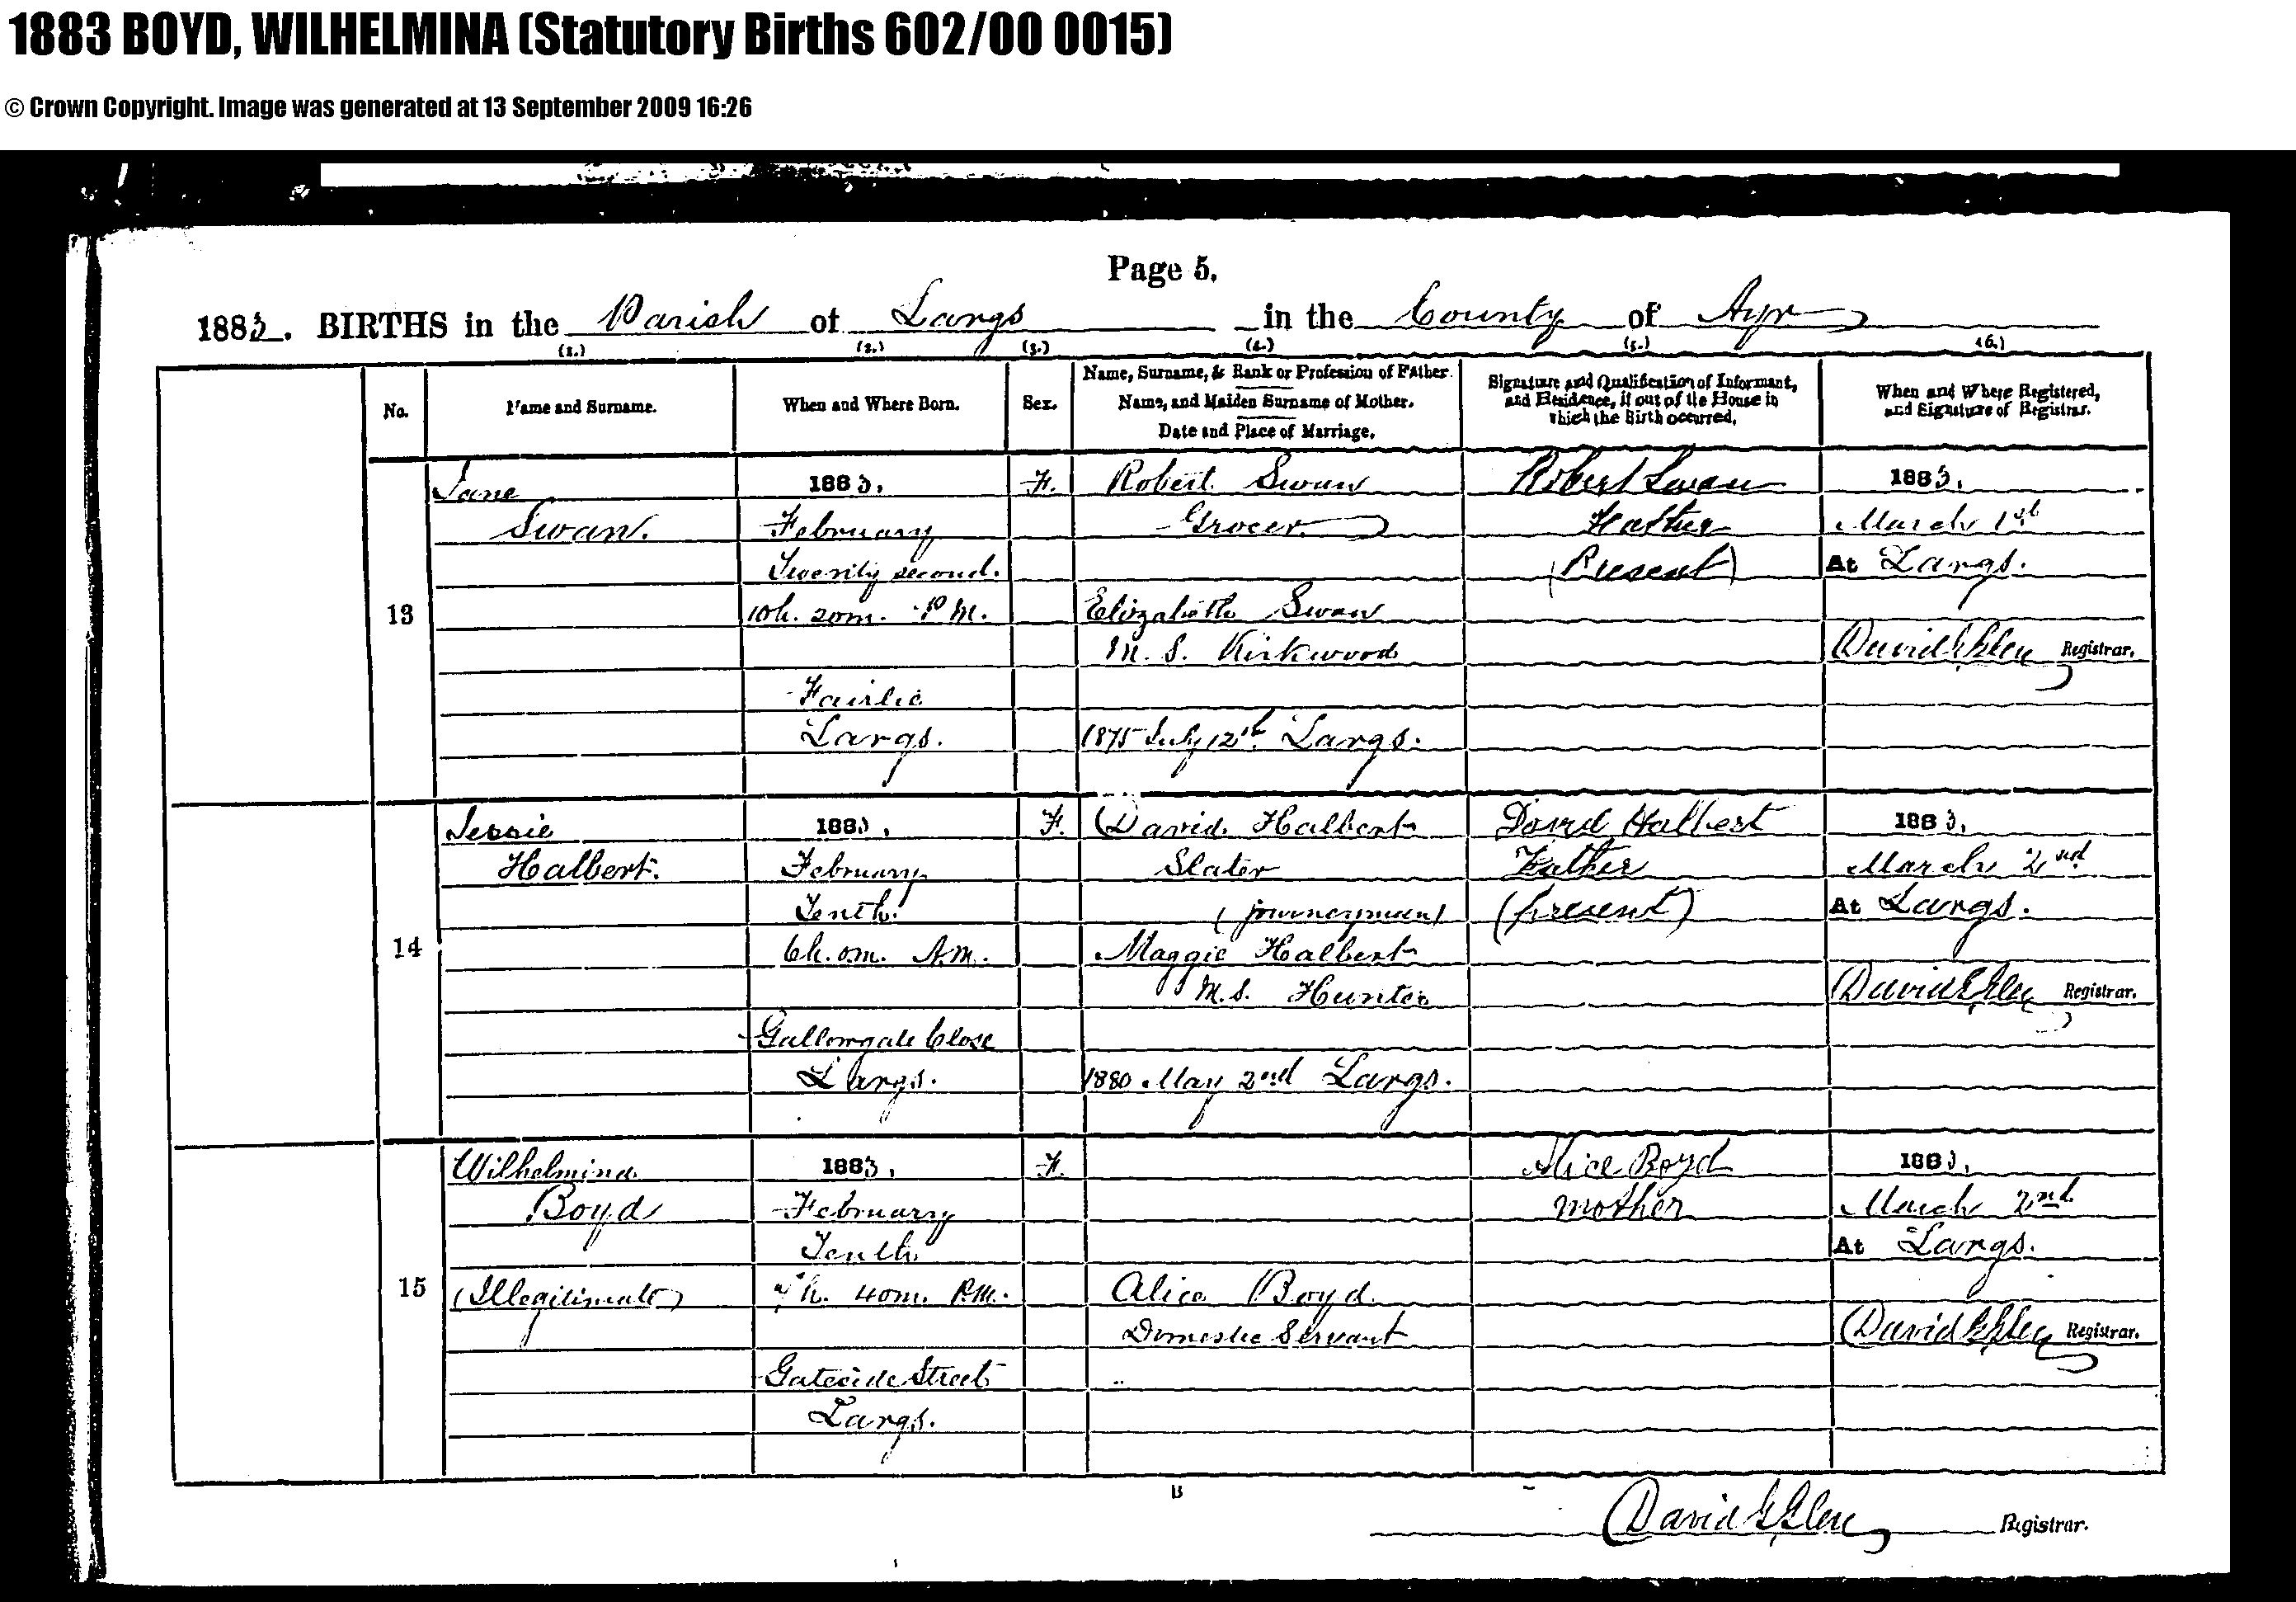 1883 BOYD, WILHELMINA (Statutory Births 602/00 0015)
© Crown Copyright. Image was generated at 13 September 2009 16:26
Page 5.
1883. BIRTHS in the Parish of Largs in the County of Ayr
(1.) (2.) (3.) (4.) (5.) (6.)
No.
Name and Surname.
When and Where Born.
Sex.
Name, Surname, & Rank or Profession of Father.
Name, and Maiden Surname of Mother.
Date and Place of Marriage.
Signature and Qualification of Informant,
and Residence, if out of the House in
which the Birth occurred.
When and Where Registered,
and Signature of Registrar.
13
Jane
Swan.
1883.
February
Twenty second.
10h. 20m. P.M.
Fairlie
Largs.
F.
Robert Swan
Grocer
Elizabeth Swan
M.S. Kirkwood
1875 July 12th Largs.
Robert Swan
Father
(Present)
1883.
March 1st
At Largs.
David G Glen Registrar.
14
Jessie
Halbert.
1883.
February
Tenth.
6h. 0m. A.M.
Gallowgate Close
Largs.
F.
David Halbert
Slater
(journeyman)
Maggie Halbert
M.S. Hunter
1880 May 2nd Largs.
David Halbert
Father
(present)
1883.
March 2nd
At Largs.
David G Glen Registrar.
15
Wilhelmina
Boyd
(Illegitimate)
1883.
February
Tenth
7h. 40m. P.M.
Gateside Street
Largs.
F.
Alice Boyd
Domestic Servant
Alice Boyd
mother
1883.
March 2nd
At Largs.
David G Glen Registrar.
B
David G Glen Registrar.